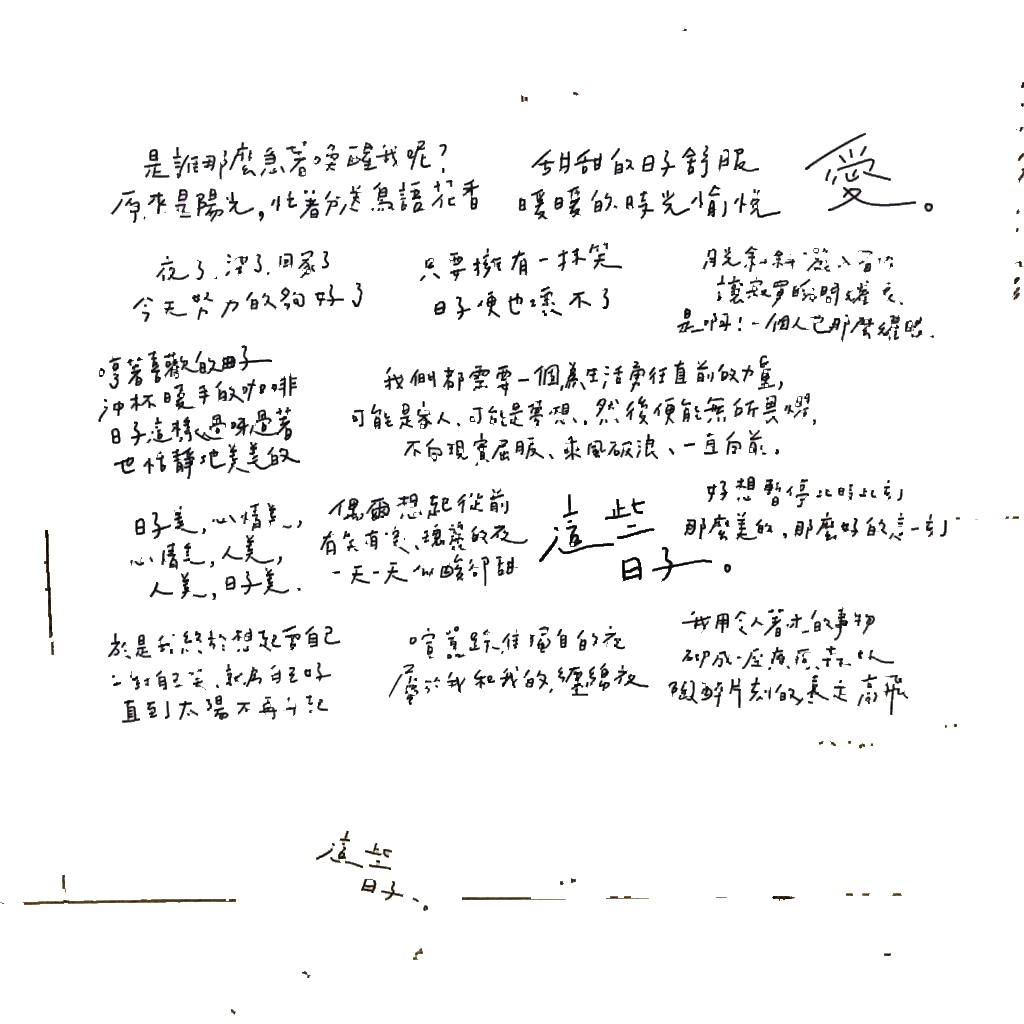 是誰那麼急著喚醒我呢?
原來是陽光,忙著分送鳥語花香
甜甜的日子舒服
暖暖的時光愉悅
愛。
夜了、深了、回家了
今天努力的夠好了
只要擁有一抹笑
日子便也壞不了
月光斜斜灑入窗
讓寂寞瞬間
是啊!一個人也那麼耀眼.
哼著喜歡的曲子
沖杯暖手的咖啡
日子這樣過呀過著
也恬靜地美美的
我們都需要一個為生活勇往直前的力量,
可能是家人、可能是夢想、然後便能無所畏懼,
不向現實屈服、乘風破浪、一直向前。
日子美,心情美,
心情美,人美,
人美,日子美.
偶爾想起從前
有笑有淚、瑰麗的夜
一天一天似酸卻甜
這些
日子。
好想暫停此時此刻
那麼美的,那麼好的這一刻
於是我終於想起愛自己
對自己笑、對自己好
直到太陽不再升起
喧囂踮住獨自的夜
屬於我和我的纏綿夜
我用令人著迷的事物
砌成一座
陶醉片刻的遠走高飛
這些
日子。